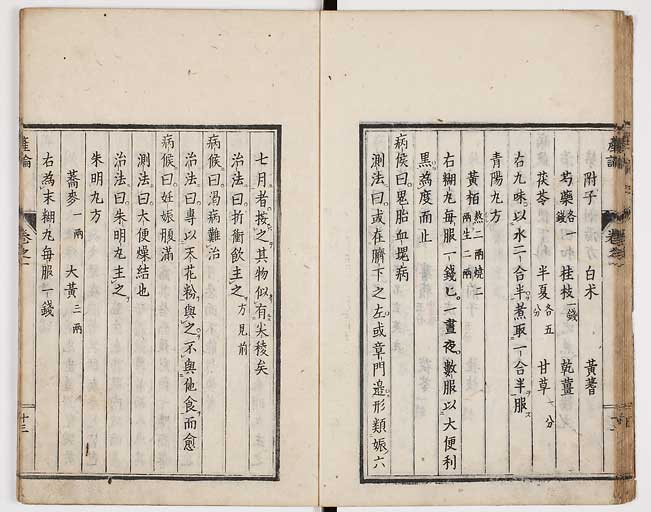 附子 白朮 黃耆
芍藥各一錢 桂枝一錢 乾薑
茯苓 半夏各五分 甘草一分
右九味以水二合半煮取一合半服
青陽丸方
黃栢熬二兩燒二兩生二兩
右糊丸每服一錢匕一晝夜數服以大便利
黑為度而止
病候曰鬼胎血塊病
測法曰或在臍下之左或章門邊形類娠六
七月者按之其物似有米稜矣
治法曰折衝飲主之方見前
病候曰渴病難治
治法曰專以天花粉與之不與他食而愈
病候曰妊娠腹滿
測法曰大便燥結也
治法曰朱明丸主之
朱明丸方
蕎麥一兩 大黃三兩
右為末糊丸每服一錢
產論
卷之一
十三